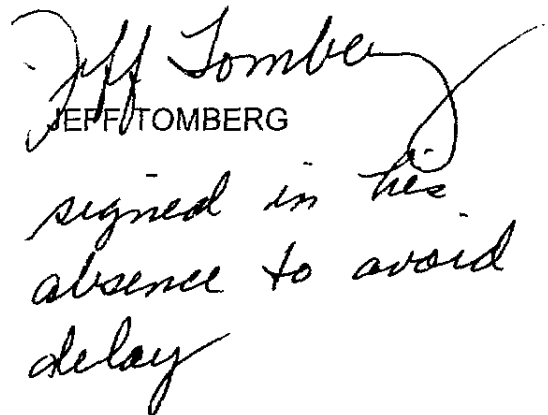 Jeff Tomberg
JEFF TOMBERG
signed in his
absence to avoid
delay